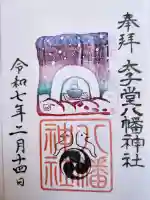 奉拝 太子堂八幡神社
令和七年二月十四日
八幡
神社